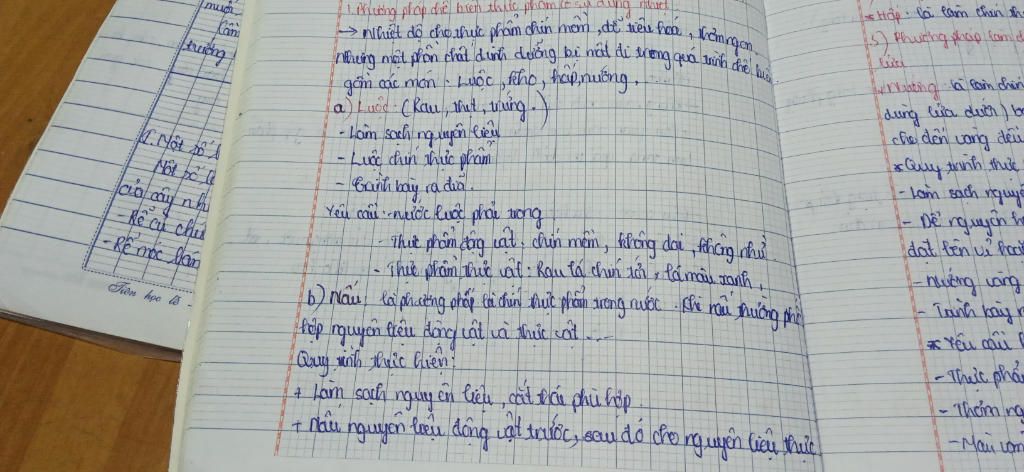 muốn
Cần
trường
V. Một số
Một số
của cây như
- Rễ củ
- Rễ móc
Tiên học lễ -
1. Phương pháp chế biến thực phẩm có sử dụng nhiệt
→ Nhiệt độ cho thực phẩm chín mềm, dễ tiêu hoá, thơm ngon
nhưng một phần chất dinh dưỡng bị mất đi trong quá trình chế biến
gồm các món: Luộc, kho, hấp, nướng.
a) Luộc: (Rau, thịt, trứng.)
- Làm sạch nguyên liệu
- Luộc chín thực phẩm
- Trình bày ra đĩa.
Yêu cầu: nước luộc phải trong
- Thực phẩm động vật: chín mềm, không dai, không nhừ
- Thực phẩm thực vật: Rau lá chín tới, lá màu xanh,
b) Nấu: là phương pháp là chín thực phẩm trong nước. Khi nấu thường phối
hợp nguyên liệu động vật và thực vật ...
Quy trình thực hiện:
+ Làm sạch nguyên liệu, cắt thái phù hợp
+ Nấu nguyên liệu động vật trước, sau đó cho nguyên liệu thực
* Hấp: là làm chín
Phương pháp làm
lửa
Nướng: là làm chín
dùng lửa dưới)
cho đến vàng đều
* Quy trình thực
- Làm sạch nguyên
- Để nguyên
đặt lên vỉ
- nướng vàng
- Trình bày
* Yêu cầu
- Thực phẩm
- Thơm
- Màu